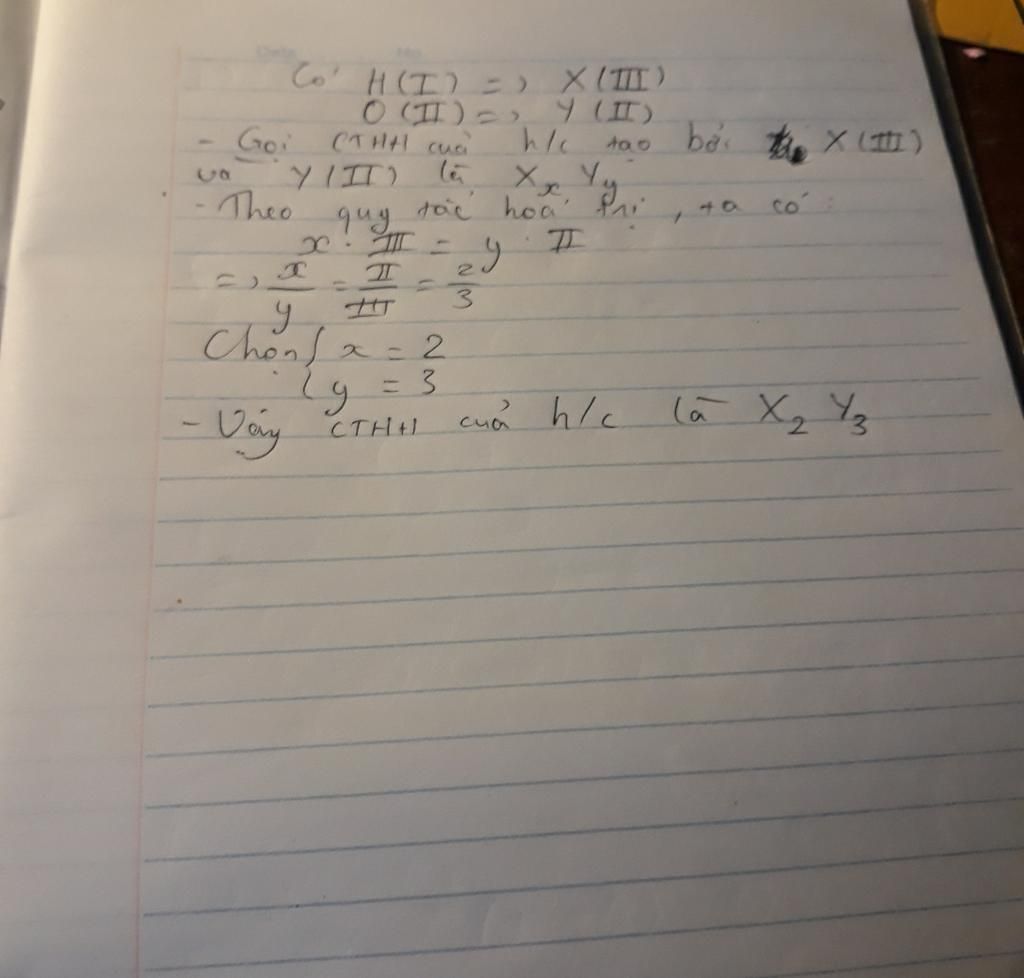 Có H(I) => X(III)
O(II) => Y(II)
- Gọi CTHH cuả h/c tạo bởi X(III)
và Y(II) là XₓYᵧ
- Theo quy tắc hoá trị, ta có:
x . III = y . II
=> x/y = II/III = 2/3
Chọn { x = 2
{ y = 3
- Vậy CTHH cuả h/c là X₂Y₃